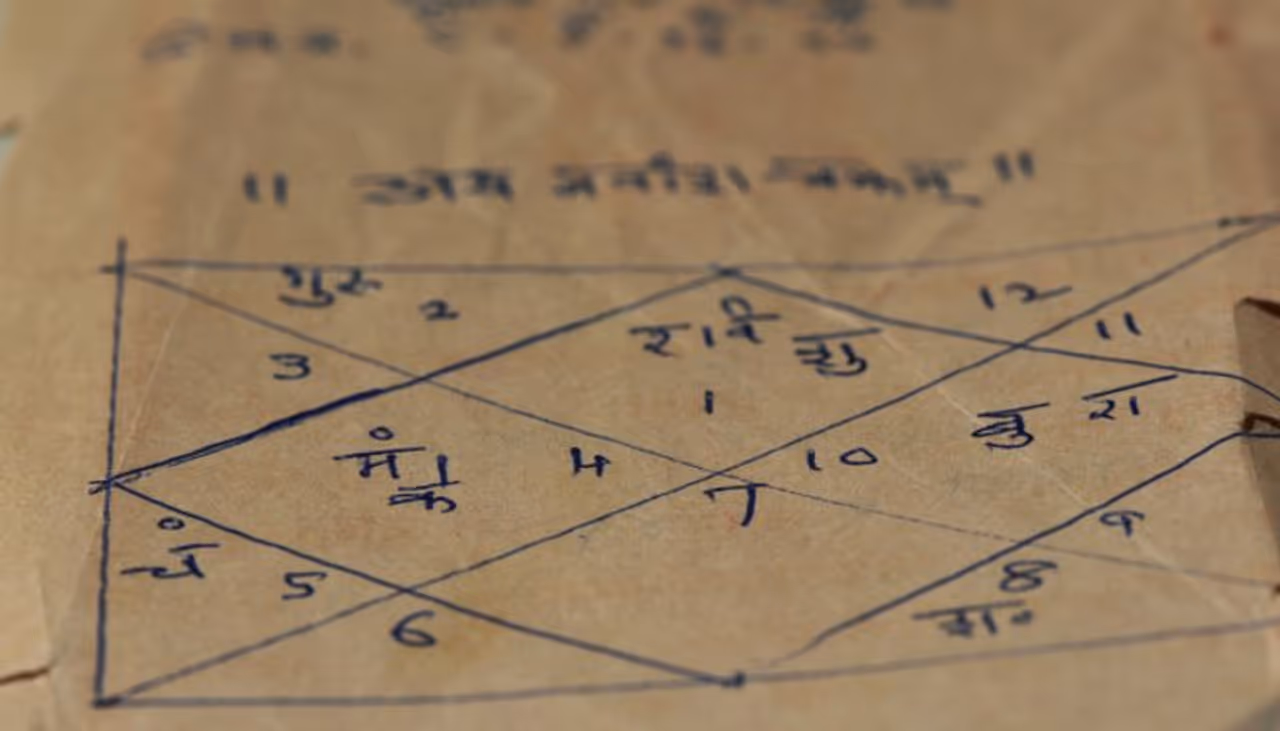 ॥ अथ नवांश चक्रम् ॥
गुरु 2 12
रवि शु 11
3
1 बु रा
मं के 4 10
7
चं 5 9
8
6 श०